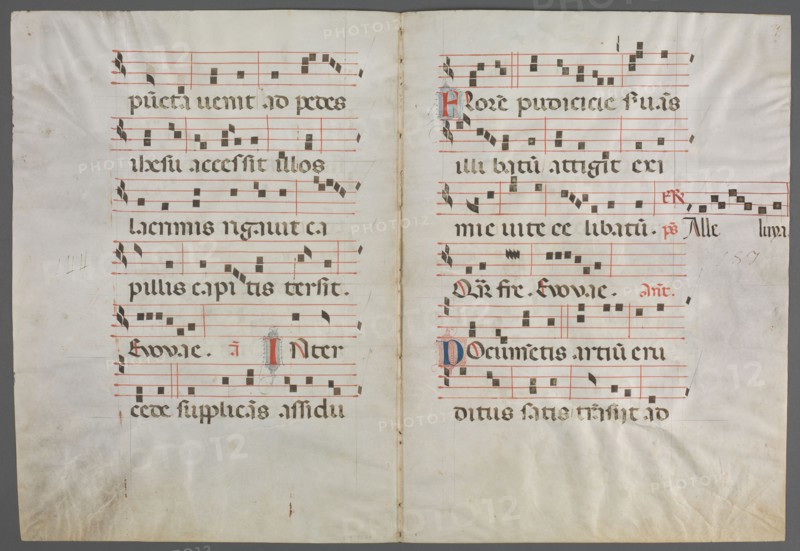 pūcta uenit ad pedes
ihesu accessit illos
lacrimis rigauit ca
pillis capitis tersit.
Evovae. ā INter
cede supplicās assidu
FLore pudicicie suās
illi batū attigit exi
mie uite ce libatū. ps Alle luya
fire. Evovae. Ant.
DOcumētis artiū eru
ditus satis trāsijt ad